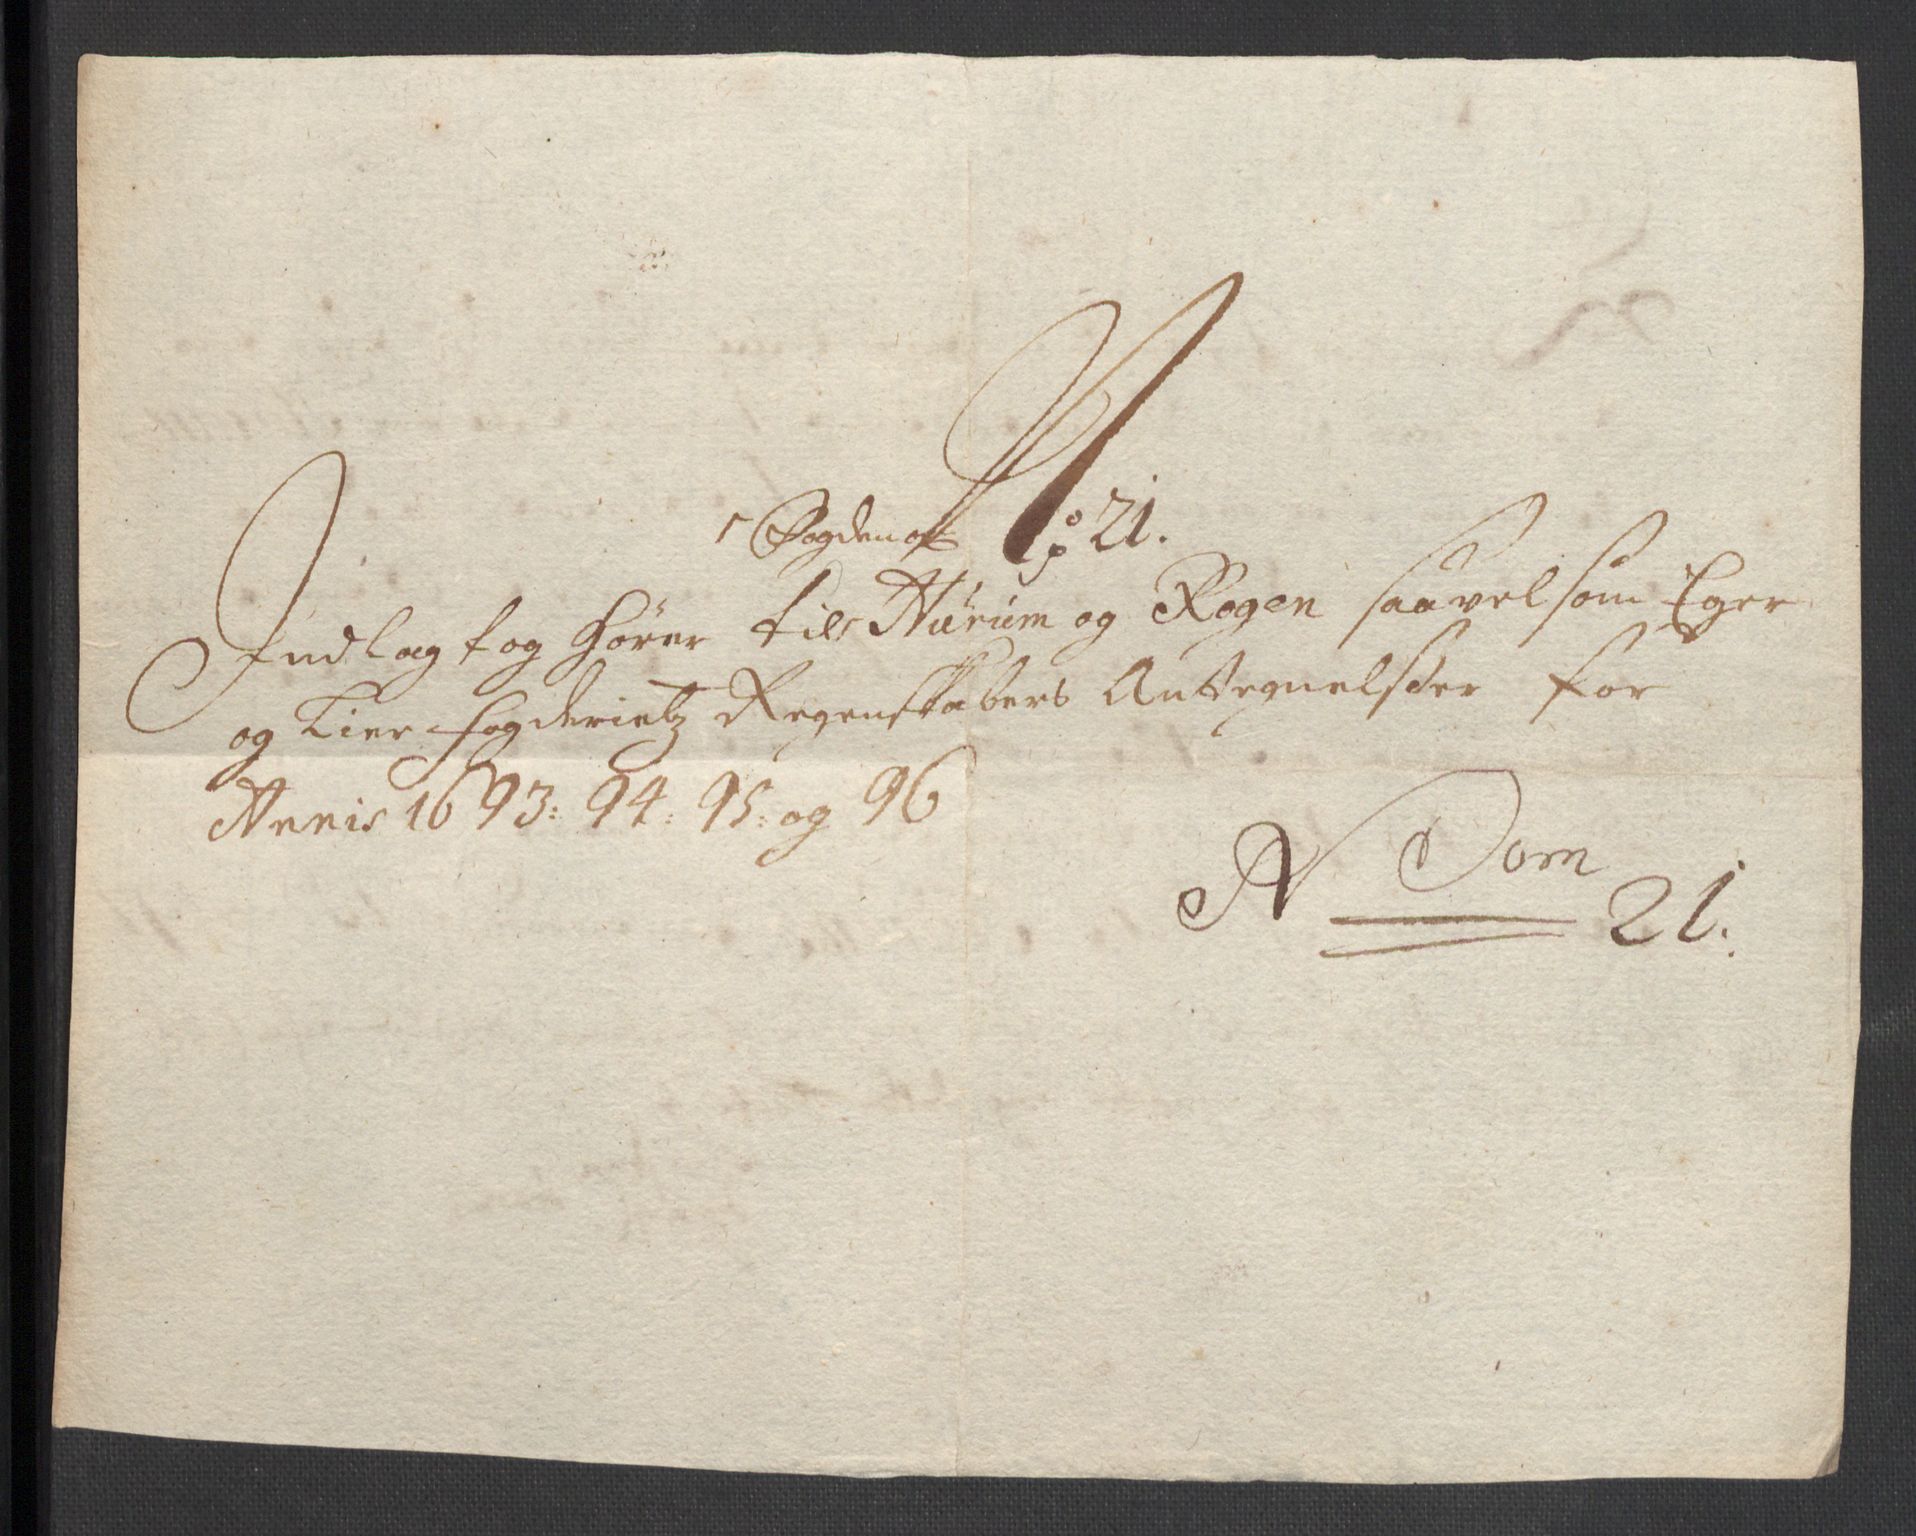 No 21.
Indlagt og hörer til Hürüm og Rogen saavelsom Eger
og Lier fogderietz Regenskabers Antegnelser for
Annis 1693: 94: 95: og 96
N Dom 21.